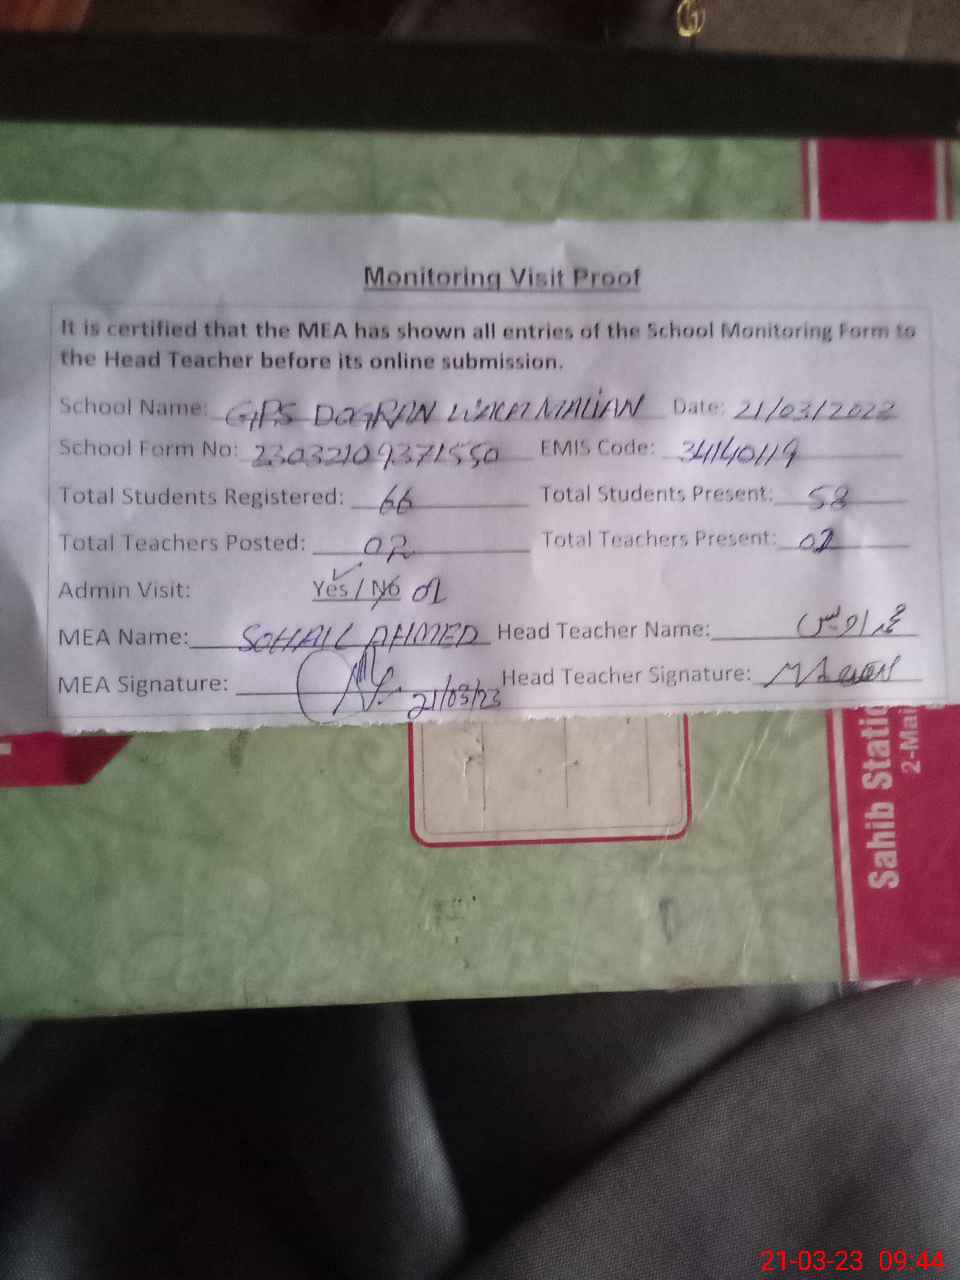 Monitoring Visit Proof
It is certified that the MEA has shown all entries of the School Monitoring Form to
the Head Teacher before its online submission.
School Name: GPS DOGRAN Date: 21/03/2023
School Form No: 23032109371550 EMIS Code: 34140119
Total Students Registered: 66 Total Students Present: 58
Total Teachers Posted: 02 Total Teachers Present: 02
Admin Visit: Yes / No 01
MEA Name: SOHAIL AHMED Head Teacher Name: محمد اویس
MEA Signature: 21/03/23 Head Teacher Signature:
Sahib Static
2-Mai
21-03-23 09:44